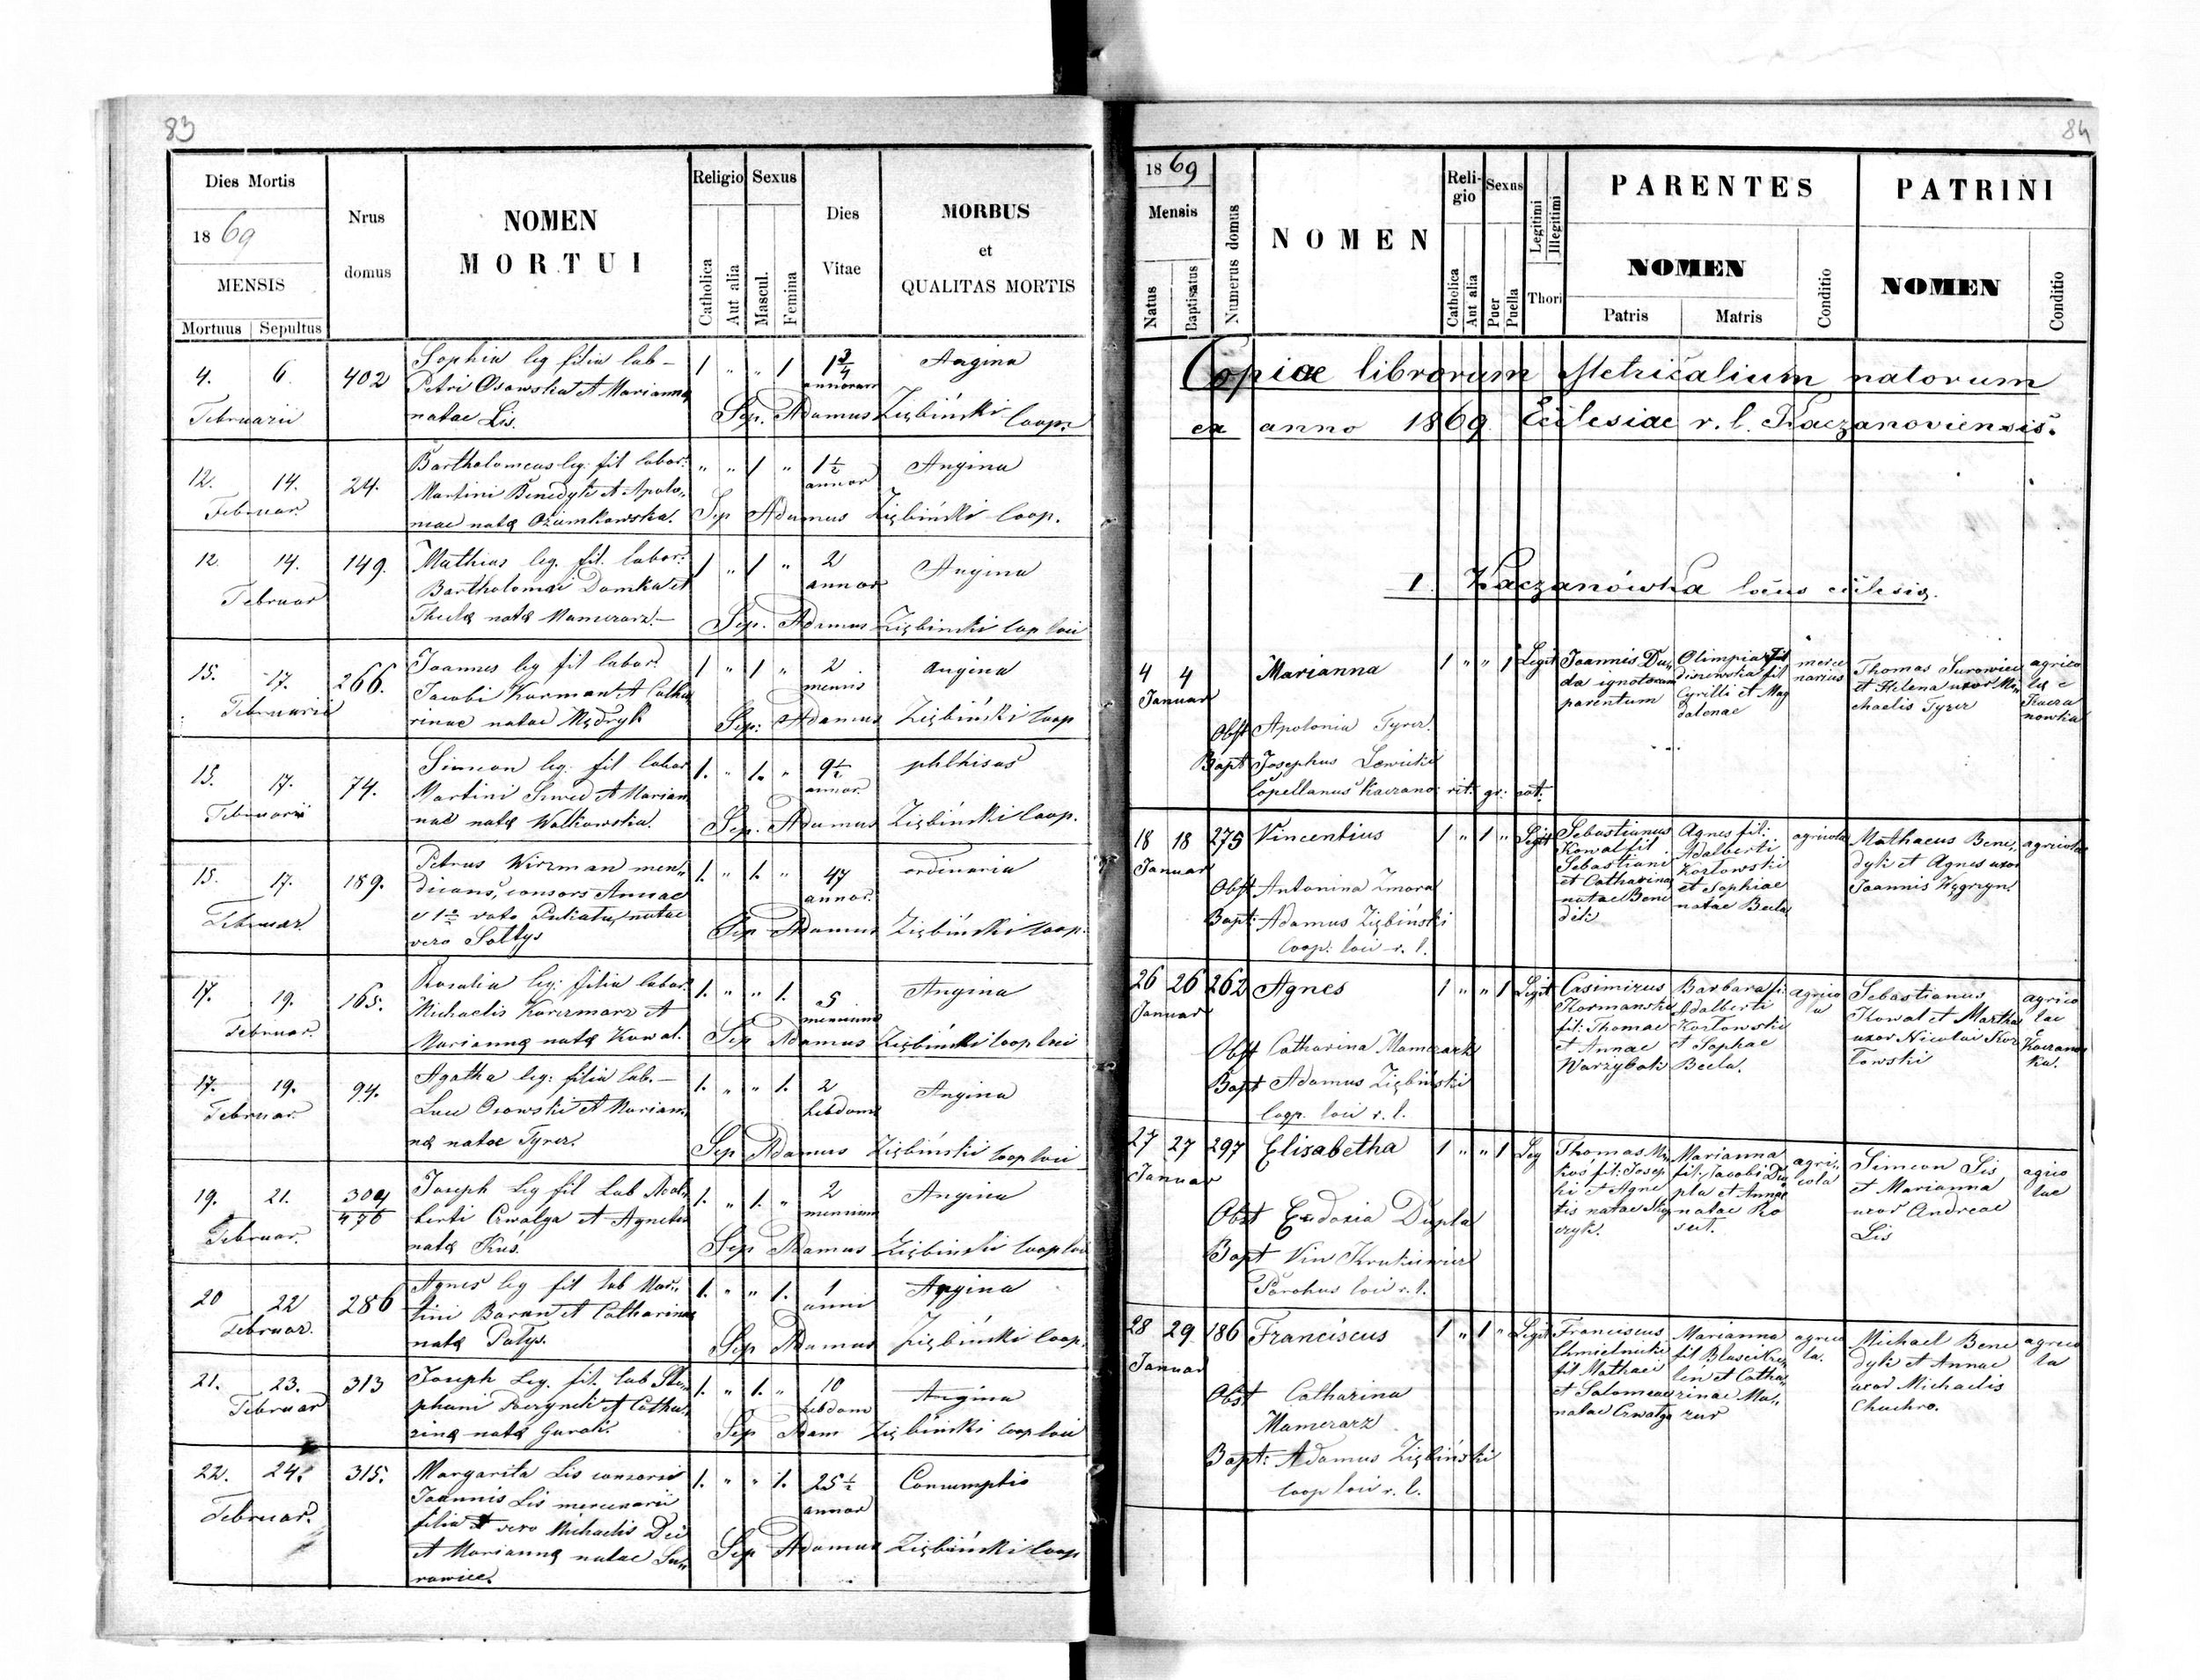 83
Dies Mortis
1869
MENSIS
Mortuus Sepultus
Nrus domus
NOMEN
MORTUI
Religio
Catholica
Aut alia
Sexus
Mascul.
Femina
Dies Vitae
MORBUS
et
QUALITAS MORTIS
4. 6. 402 Sophia leg filia lab- 1 " " 1 1 3/4 Angina
Petri Osowska et Marianna annorum
Februarii natae Lis. Sep. Adamus Ziębiński Coop.
12. 14. 24. Bartholomeus leg: fil labor: " " 1 " 1 1/2 Angina
Martini Benedyk et Apolo„ annor
Februar. niae natę Ozimkowska. Sep Adamus Ziębiński Coop.
12. 14. 149. Mathias leg. fil. labor: 1 " 1 " 2 Angina
Bartholomęi Domka et annor
Februar Theclę natę Mamcrarz.- Sep. Adamus Ziębiński
15. 17. 266. Joannes leg fil labor: 1 " 1 " 2 angina
Jacobi Karman et Catha„ mensis
Februarii rinae natae Mędryk Sep: Adamus Ziębiński Coop
15. 17. 74. Simeon leg: fil labor 1. " 1. " 9 1/2 phthisas
Martini Szwed et Marian„ annor.
Februarii nae natę Walkowska. Sep. Adamus Ziębiński Coop.
15. 17. 189. Petrus Wirzman men„ 1. " 1. " 47 ordinaria
dicans, consors Annae annor.
Februar. voto natae
vero Sołtys Sep Adamus Ziębiński Coop.
17. 19. 165. Rosalia leg: filia labor 1. " " 1. 5 Angina
Michaelis Karczmarz et mensium
Februar. Mariannę natę Kowal. Sep Adamus Ziębiński Coop loci
17. 19. 94. Agatha leg: filia lab.- 1. " " 1. 2 Angina
Lucae Osowski et Marian„ hebdom
Februar. nę natae Tyrcz. Sep Adamus Ziębiński Coop loci
19. 21. 304/476 Joseph Leg fil Lab Adal„ 1. " 1. " 2 Angina
berti Czwalga et Agnetis mensium
Februar. natę Kuś. Sep Adamus Ziębiński Coop loci
20 22 286 Agnes leg fil lab Mar„ 1. " " 1. 1 Angina
tini Baran et Catharinae anni
Februar. natę Patys. Sep Adamus Ziębiński Coop.
21. 23. 313 Joseph Leg. fil. lab Ste„ 1. " 1. " 10 Angina
phani et Catha„ hebdom
Februar rinę natę Gurak. Sep Adam Ziębiński Coop loci
22. 24. 315. Margarita Lis consors 1. " " 1. 25 1/2 Consumptio
Joannis Lis mercenarii annor
Februar. filia vero Michaelis
et Mariannę natae Su„ Sep Adamus Ziębiński Coop
rowiec.
84
1869
Mensis
Natus
Baptisatus
Numerus domus
NOMEN
Reli-
gio
Catholica
Aut alia
Sexus
Puer
Puella
Legitimi
Illegitimi
Thori
PARENTES
NOMEN
Patris
Matris
Conditio
PATRINI
NOMEN
Conditio
Copiae librorum Metricalium natorum
ex anno 1869 Ecclesiae r. l. Kaczanoviensis.
1. Kaczanówka locus ecclesię.
4 4 Marianna 1 " " 1 Legit
Januar
Joannis Du„
da ignotorum
parentum
Olimpia
diszewska fil
Cyrilli et Mag
dalenae
merce
narius
Thomas Surowiec
et Helena uxor Mi„
chaelis Tyrcz
agrico
lę e
Kacza
nowka
Obst Apolonia Tyrcz.
Bapt Josephus Lewicki
Capellanus Kaczano rit: gr: cat:
18 18 275 Vincentius 1 " 1 " Legit
Januar
Sebastianus
Kowal fil
Sebastiani
et Catharina
natae Bene
dik
Agnes fil:
Adalberti
Kozłowski
et Sophiae
natae Becla
agricola
Mathaeus Bene„
dyk et Agnes uxor
Joannis Węgrzyn
agricolae
Obst Antonina Zmora
Bapt: Adamus Ziębiński
Coop: loci r. l.
26 26 262 Agnes 1 " " 1 Legit
Januar
Casimirus
Kormanski
fil: Thomae
et Annae
Warzybok
Barbara fi:
Adalberti
Kozłowski
et Sophae
Becla.
agrico
la
Sebastianus
Kowal et Martha
uxor Nicolai Koz
łowski
agrico
lae
e
Kaczanow
ka.
Obst Catharina Mamcrarz
Bapt Adamus Ziębiński
Coop. loci r. l.
27 27 297 Elisabetha 1 " " 1 Leg
Januar
Thomas
fil: Josep
hi et Agne
tis natae
czyk.
Marianna
fil. Jacobi Du
pla et Annae
natae Ro
sut.
agri„
cola
Simeon Lis
et Marianna
uxor Andreae
Lis
agico
lae
Obst Eudoxia Dupla
Bapt Vin Krukiewicz
Parohus loci r. l.
28 29 186 Franciscus 1 " 1 " Legit
Januar
Franciscus
Chmielnicki
fil Mathaei
et Salomeae
natae Czwalga
Marianna
fil Blasei Krze„
len et Catha„
rinae Ma„
zur
agrico
la.
Michael Bene
dyk et Annae
uxor Michaelis
Chuchro.
agrico
la
Obst Catharina
Mamcrarz
Bapt: Adamus Ziębiński
Coop loci r. l.